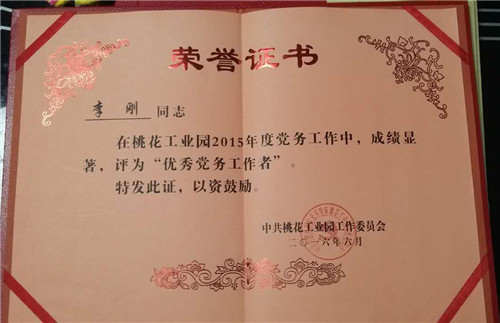 荣誉证书
李刚 同志
在桃花工业园2015年度党务工作中，成绩显
著，评为“优秀党务工作者”。
特发此证，以资鼓励。
中共桃花工业园工作委员会
二〇一六年六月